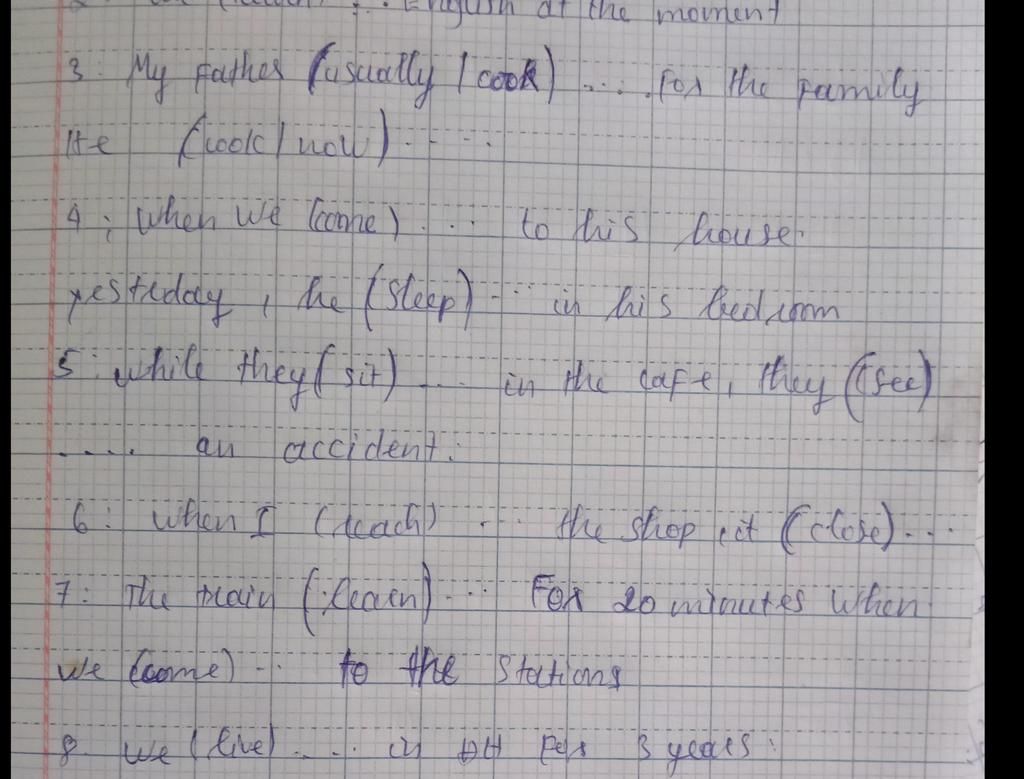 English at the moment
3: My father (usually / cook) .... for the family
He (cook / now) .....
4: When we (come) .... to his house.
yesterday, he (sleep) ... in his bedroom
5: while they (sit) .... in the cafe, they (see)
.... an accident.
6: When I (reach) ... the shop, it (close) ...
7: The train (learn) ... For 20 minutes when
we (come) ... to the stations
8 We (live) .... in for 3 years.